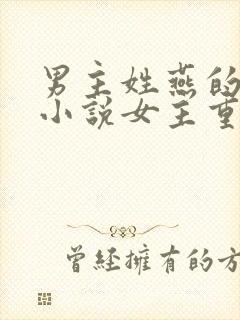 男主姓燕的
小説女主重
曾經擁有的方